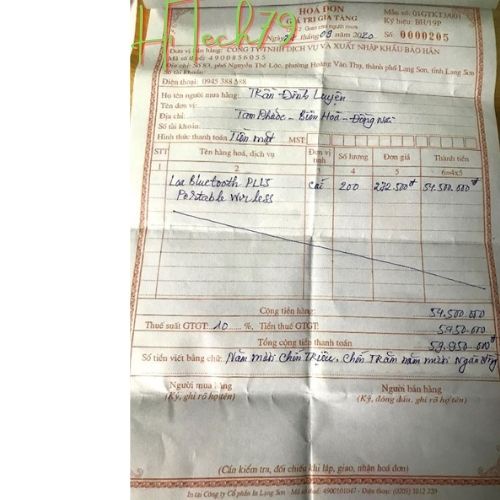 HiTech79
HOÁ ĐƠN
GIÁ TRỊ GIA TĂNG
Mẫu số: 01GTKT3/001
Ký hiệu: BH/19P
Số: 0000205
Ngày 04 tháng 08 năm 2020
Đơn vị bán hàng: CÔNG TY TNHH DỊCH VỤ VÀ XUẤT NHẬP KHẨU BẢO HÂN
Mã số thuế: 4900856055
Địa chỉ: Số 83, phố Nguyễn Thế Lộc, phường Hoàng Văn Thụ, thành phố Lạng Sơn, tỉnh Lạng Sơn
Số tài khoản
Điện thoại: 0945 388 588
Họ tên người mua hàng: Trần Đình Luyện
Tên đơn vị:
Địa chỉ: Tam Phước - Biên Hoà - Đồng Nai
Số tài khoản
Hình thức thanh toán: Tiền mặt MST:
STT Tên hàng hoá, dịch vụ Đơn vị tính Số lượng Đơn giá Thành tiền
1 2 4 5 6=4x5
Loa Bluetooth PLUS cái 200 272.500đ 54.500.000đ
Portable Wirless
Cộng tiền hàng: 54.500.000
Thuế suất GTGT: 10 %, Tiền thuế GTGT: 5450.000
Tổng cộng tiền thanh toán 59.950.000đ
Số tiền viết bằng chữ: Năm mươi chín Triệu, chín Trăm năm mươi Ngàn đồng
Người mua hàng
(Ký, ghi rõ họ tên)
Người bán hàng
(Ký, đóng dấu, ghi rõ họ tên)
(Cần kiểm tra, đối chiếu khi lập, giao, nhận hoá đơn)
In tại Công ty Cổ phần In Lạng Sơn - Mã số thuế: 4900101047 - Điện thoại: (0205) 3812 229